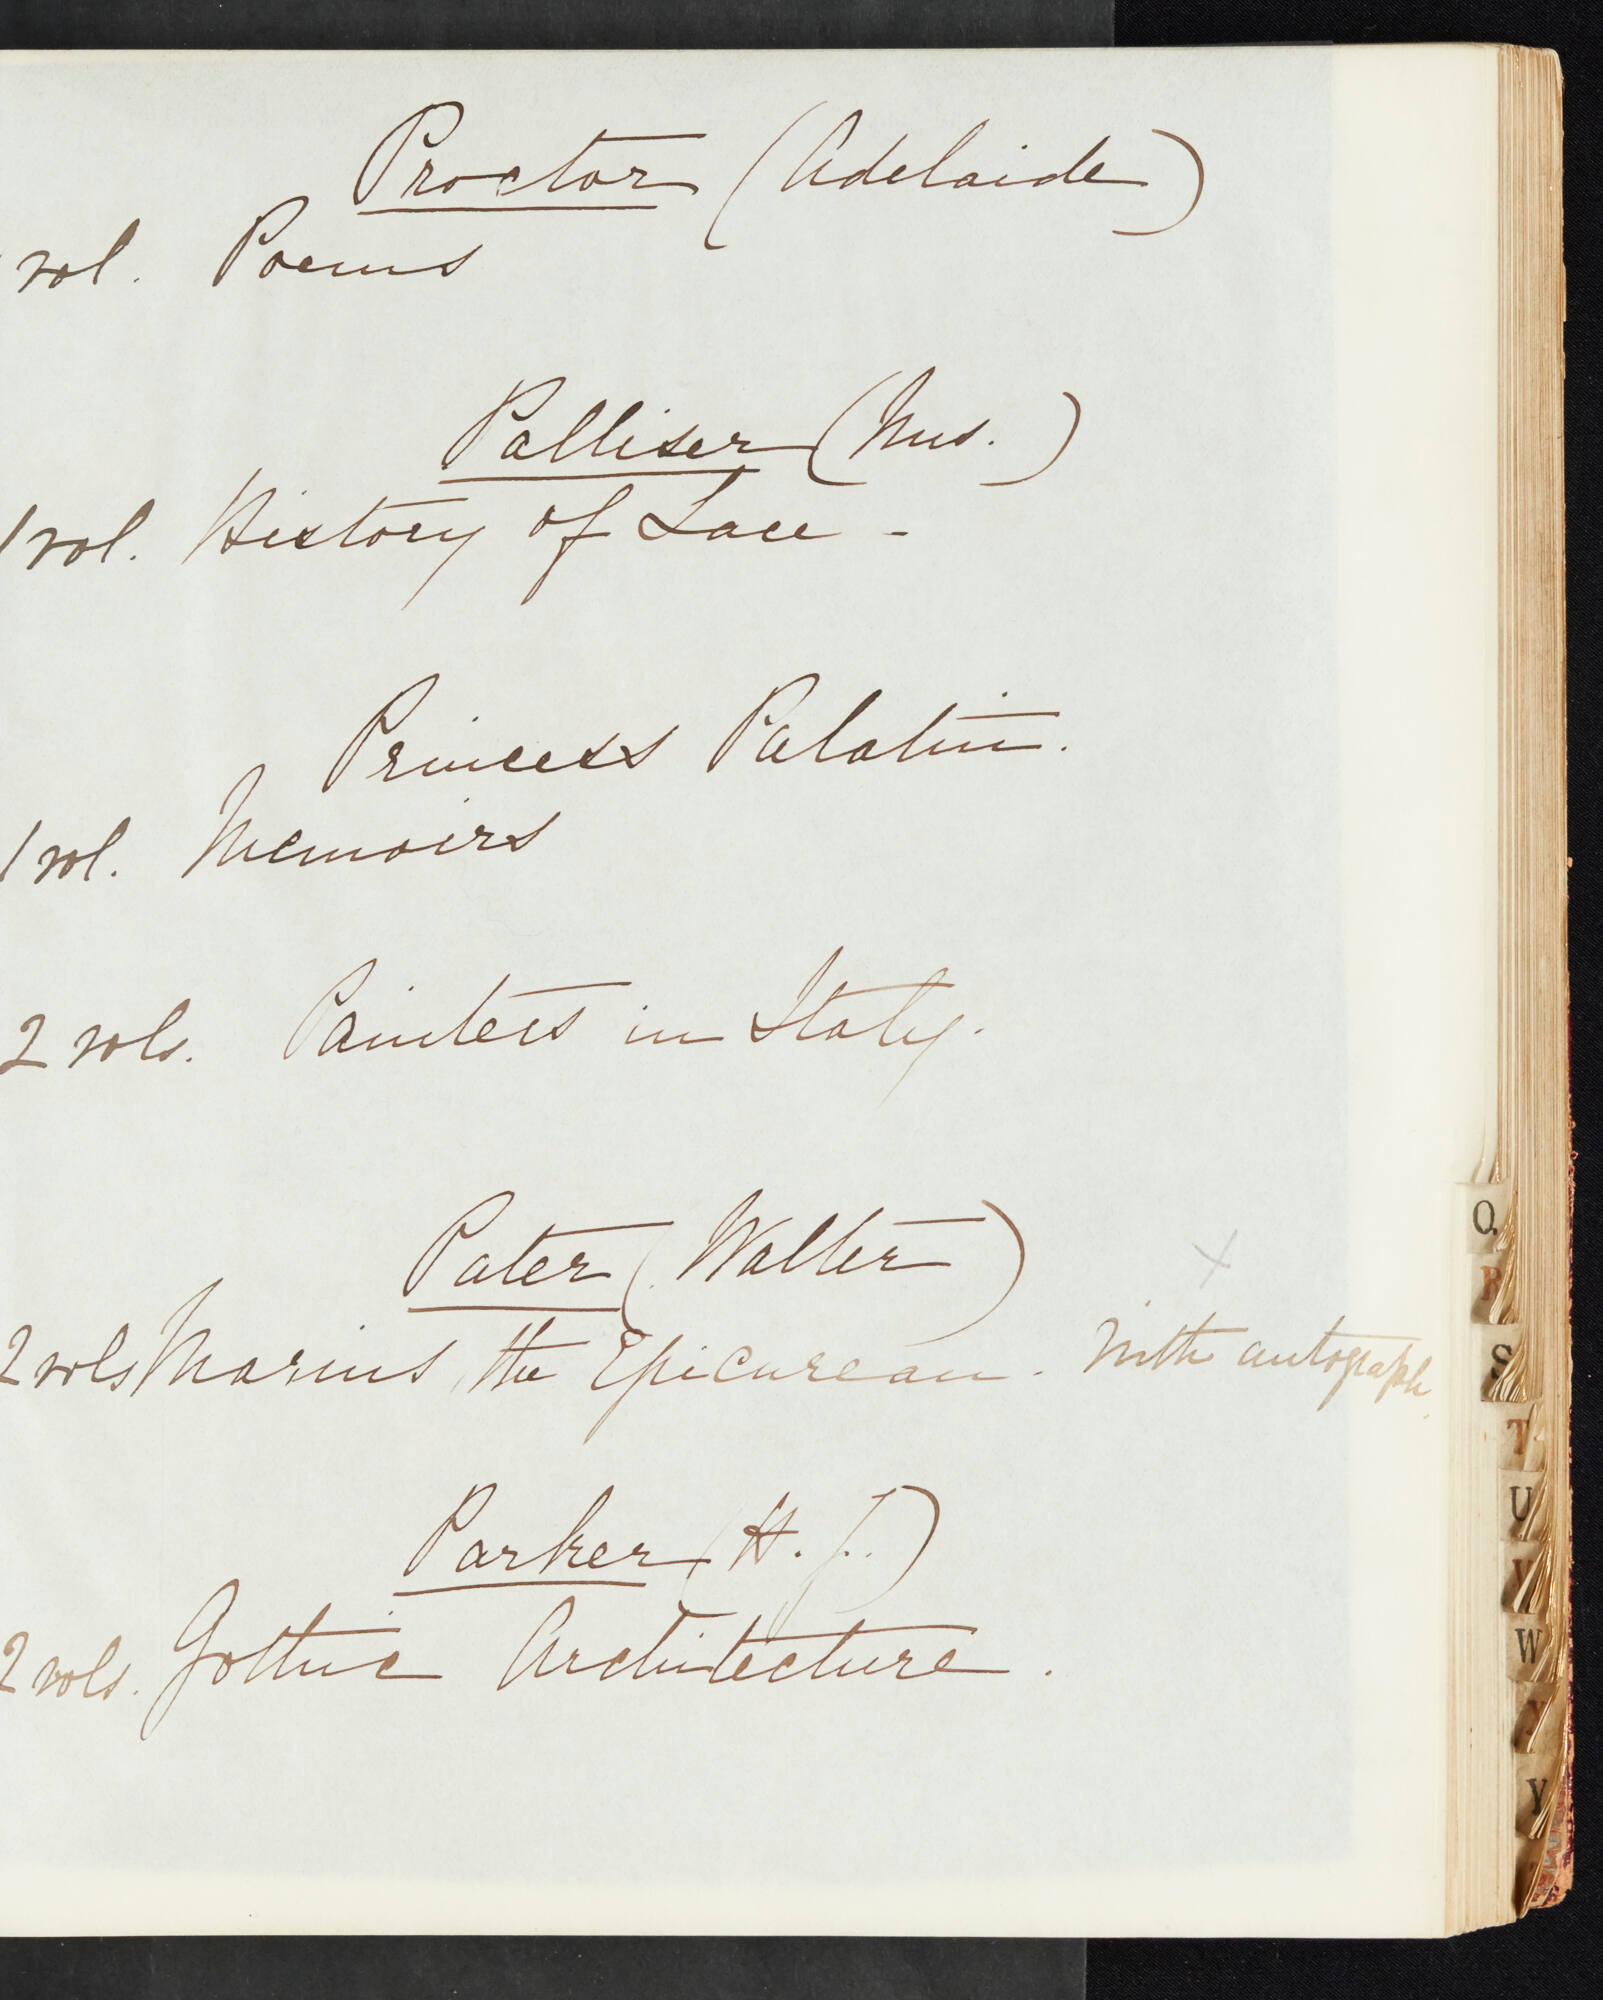 Proctor (Adelaide)
vol. Poems
Palliser (Mrs.)
1 vol. History of Lace -
Princess Palatin.
1 vol. Memoirs
2 vols. Painters in Italy.
Pater (Walter)
x
2 vols Marius the Epicurean. With autograph.
Parker (H. J.)
2 vols. Gothic Architecture.
Q
R
S
T
U
V
W
Y